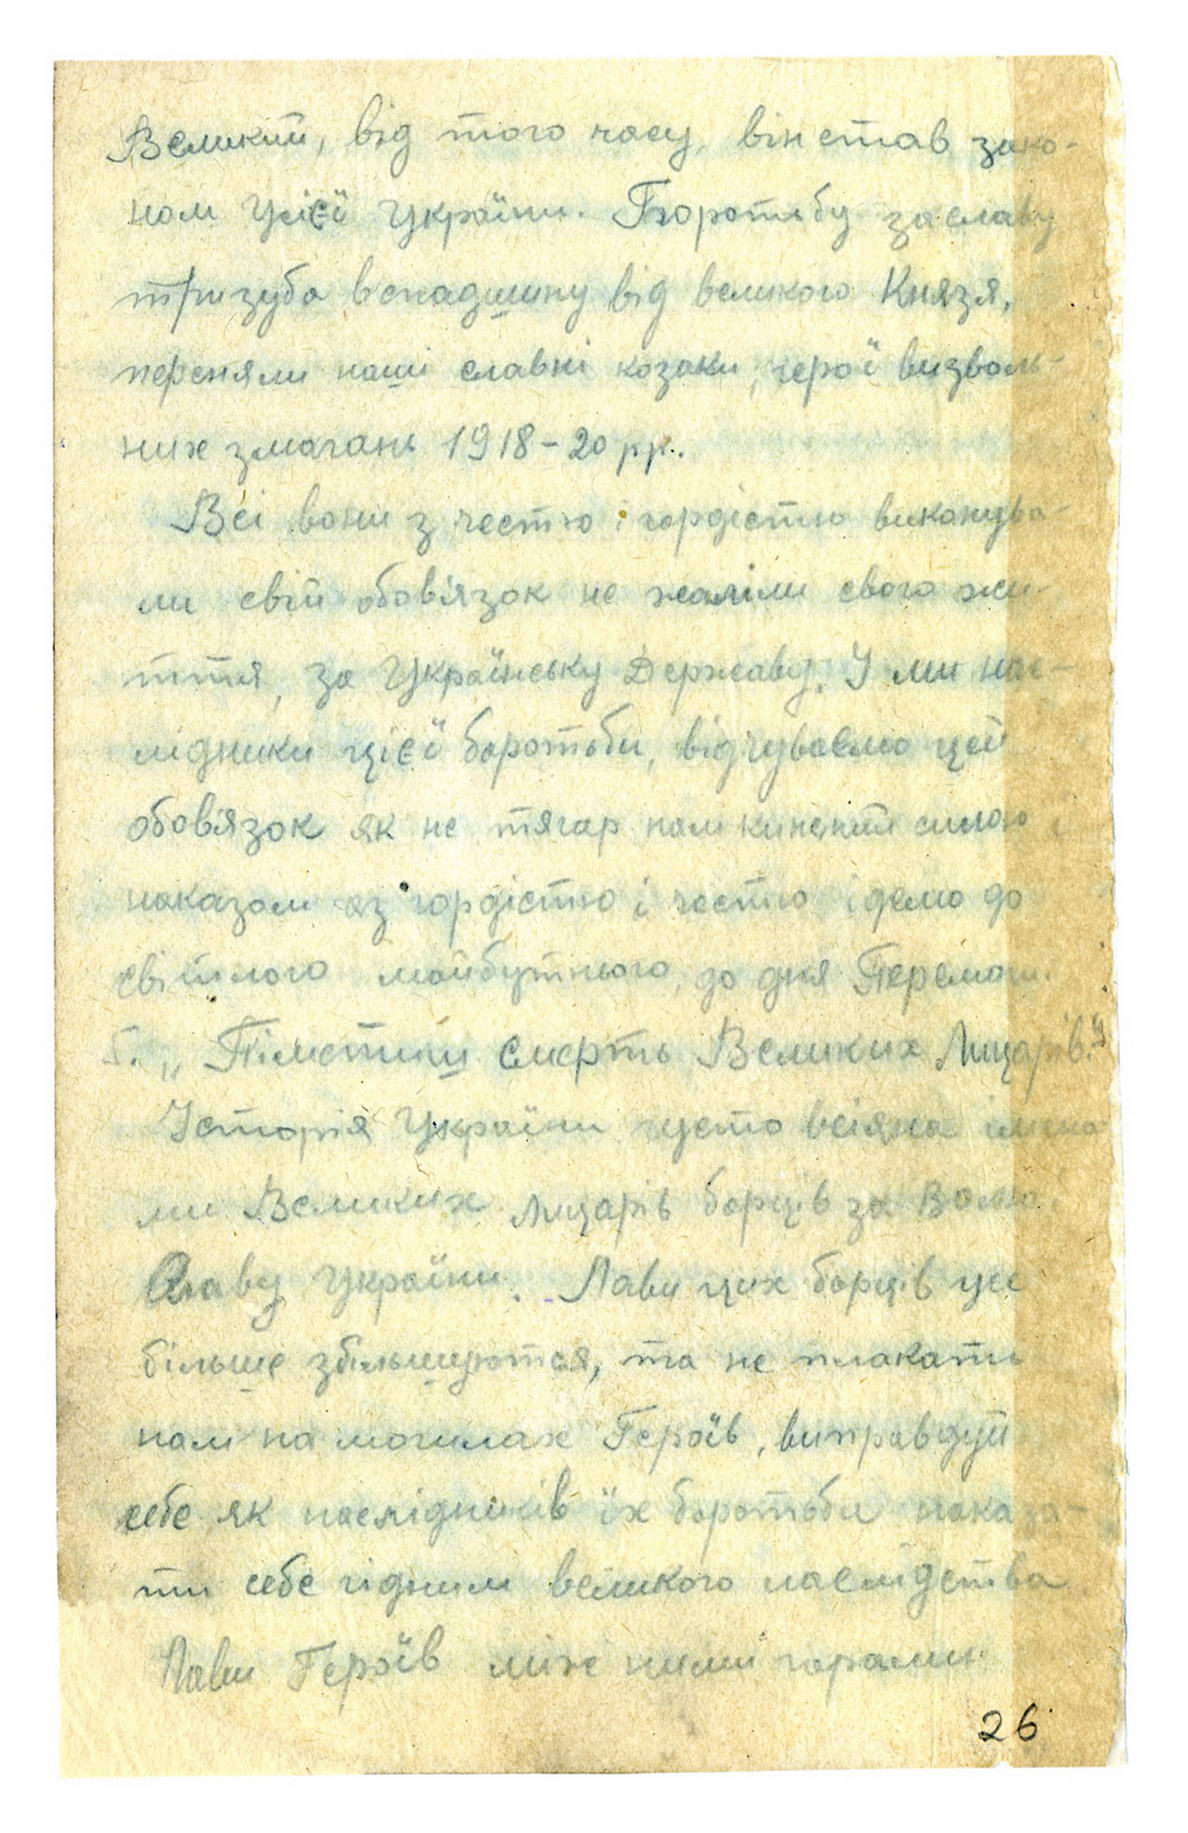 Великий, від того часу, він став зако-
ном Усієї України. Боротьбу за славу
тризуба вспадщину від великого Князя,
переняли наші славні козаки, герої визволь-
них змагань 1918-20 рр.
Всі вони з честю і гордістю виконува-
ли свій обов'язок не жаліли свого жи-
ття, за Українську Державу. І ми нас-
лідники цієї боротьби, відчуваємо цей
обов'язок як не тягар нам кинений силою і
наказом аз гордістю і честю ідемо до
світлого майбутнього, до дня Перемоги.
5. „Пімстиш смерть Великих Лицарів."
Історія України густо всіяна імена
ми Великих Лицарів борців за Волю і
Славу України. Лави цих борців ще
більше збільшуются, та не плакати
нам на могилах Героїв, виправдуй
себе як наслідників їх боротьби показа-
ти себе гідним великого наслідства
Лави Героїв між ними горами
26